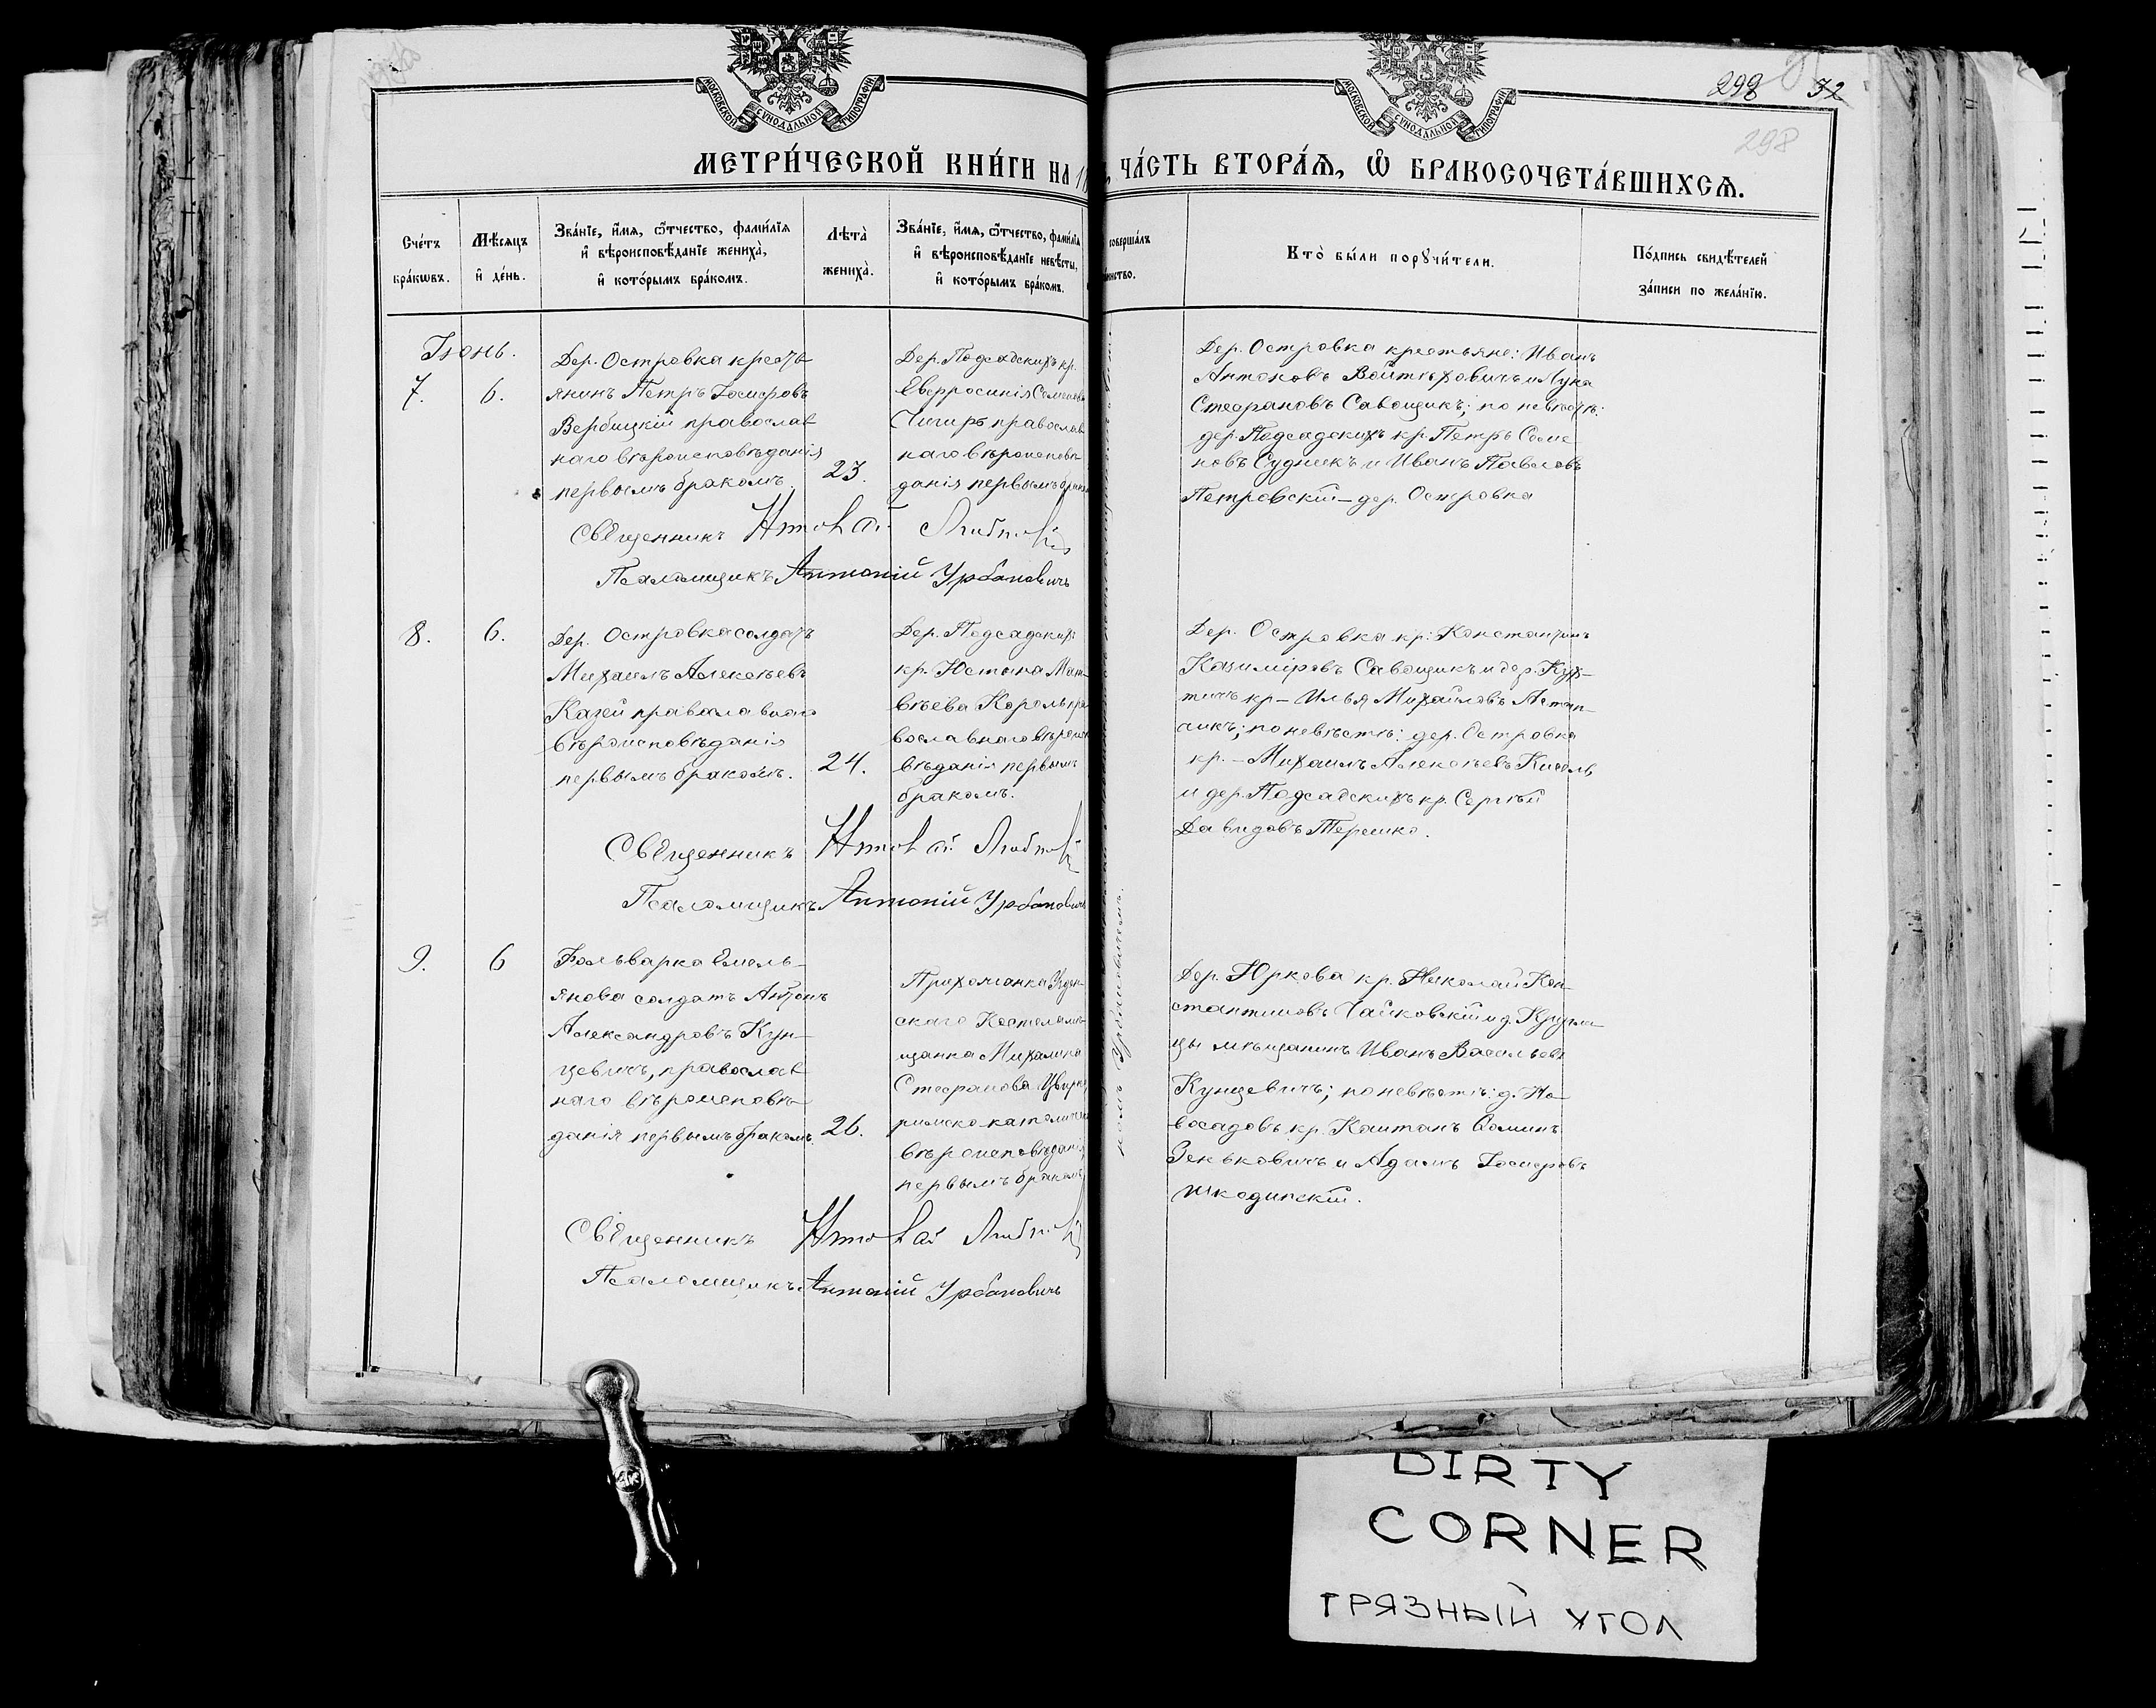 МОСКОВСКОЙ СУНОДАЛЬНОЙ ТИПОГРАФІИ
МОСКОВСКОЙ СУНОДАЛЬНОЙ ТИПОГРАФІИ
298 32
298
МЕТРИ́ЧЕСКОЙ КНИ́ГИ НА 18
, ЧА́СТЬ ВТОРА́Ѧ, Ѽ БРАКОСОЧЕТА́ВШИХСѦ.
Сче́тъ бра́кѡвъ.
Мѣ́сѧцъ и҆ де́нь.
Зва́нїе, и҆́мѧ, ѻ҆́тчество, фами́лїѧ и҆ вѣроисповѣ́данїе жениха̀, и҆ кото́рымъ бра́комъ.
Лѣта̀ жениха̀.
Зва́нїе, и҆́мѧ, ѻ҆́тчество, фами́лїѧ и҆ вѣроисповѣ́данїе невѣ́сты, и҆ кото́рымъ бра́комъ.
соверша́лъ
Кто̀ бы́ли порꙋчи́тели.
По́дпись свидѣ́телей за́писи по жела́нїю.
Іюнь.
7.
6.
Дер. Островка кресть-
янинъ Петръ Іосифовъ
Вербицкій православ-
наго вѣроисповѣданія
первымъ бракомъ.
23.
Дер. Подсадскихъ кр.
Евфросинія Семенов
Чигирь православ
наго вѣроисповѣ
данія первымъ брако
Дер. Островка крестьяне: Иванъ
Антоновъ Войтѣховичъ и Лука
Стефановъ Савощикъ; по невѣстѣ:
дер. Подсадскихъ кр. Петръ Семе-
новъ Судникъ и Иванъ Павловъ
Петровскій – дер. Островка
Священникъ
Псаломщикъ Антоній Урбановичъ
8.
6.
Дер. Островка солдатъ
Михаилъ Алексѣевъ
Казей православнаго
вѣроисповѣданія
первымъ бракомъ.
24.
Дер. Подсадскихъ
кр. Юстына Мат-
вѣева Король пра
вославнаго вѣроис
вѣданія первымъ
бракомъ.
Дер. Островка кр: Константинъ
Казиміровъ Савощикъ и дер.
кр – Илья Михайловъ
по невѣстѣ: дер. Островка
кр. – Михаилъ Алексѣевъ
и дер. Подсадскихъ кр. Сергѣй
Давидовъ Терешко.
Священникъ
Псаломщикъ Антоній Урбановичъ
9.
6
Фольварка Емель-
янова солдатъ Антонъ
Александровъ Кун-
цевичъ, православ-
наго вѣроисповѣ-
данія первымъ бракомъ
26.
Прихожанка Узден-
скаго Костела мѣ-
щанка Михалина
Стефанова
римско католическ
вѣроисповѣданія
первымъ бракомъ
Дер. Юркова кр. Николай Кон-
стантиновъ Чайковскій и д.
мѣщанинъ Иванъ Васильевъ
Кунцевичъ; по невѣстѣ: д. Но-
восадовъ кр. Каитанъ Фоминъ
Зеньковичъ и Адамъ Іосифовъ
Шкодинскій.
Священникъ
Псаломщикъ Антоній Урбановичъ
DIRTY
CORNER
ГРЯЗНЫЙ УГОЛ